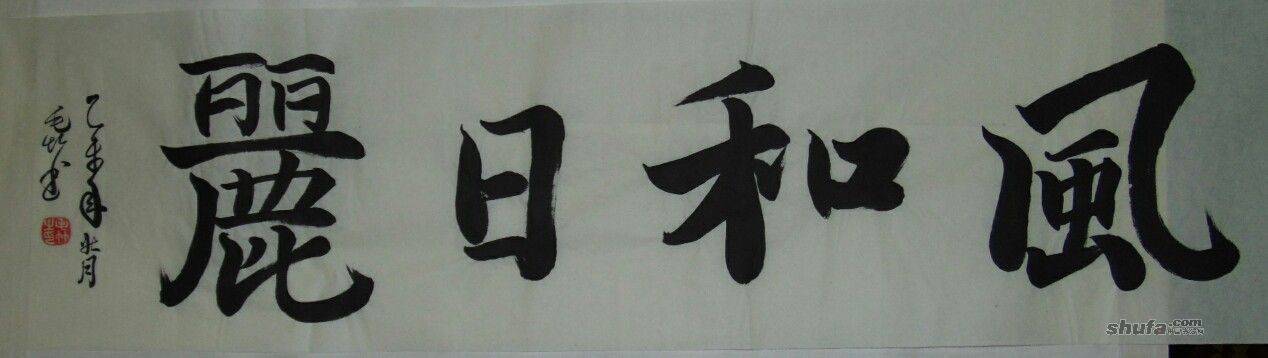 風和日麗
乙未年
月
書
shufa.com